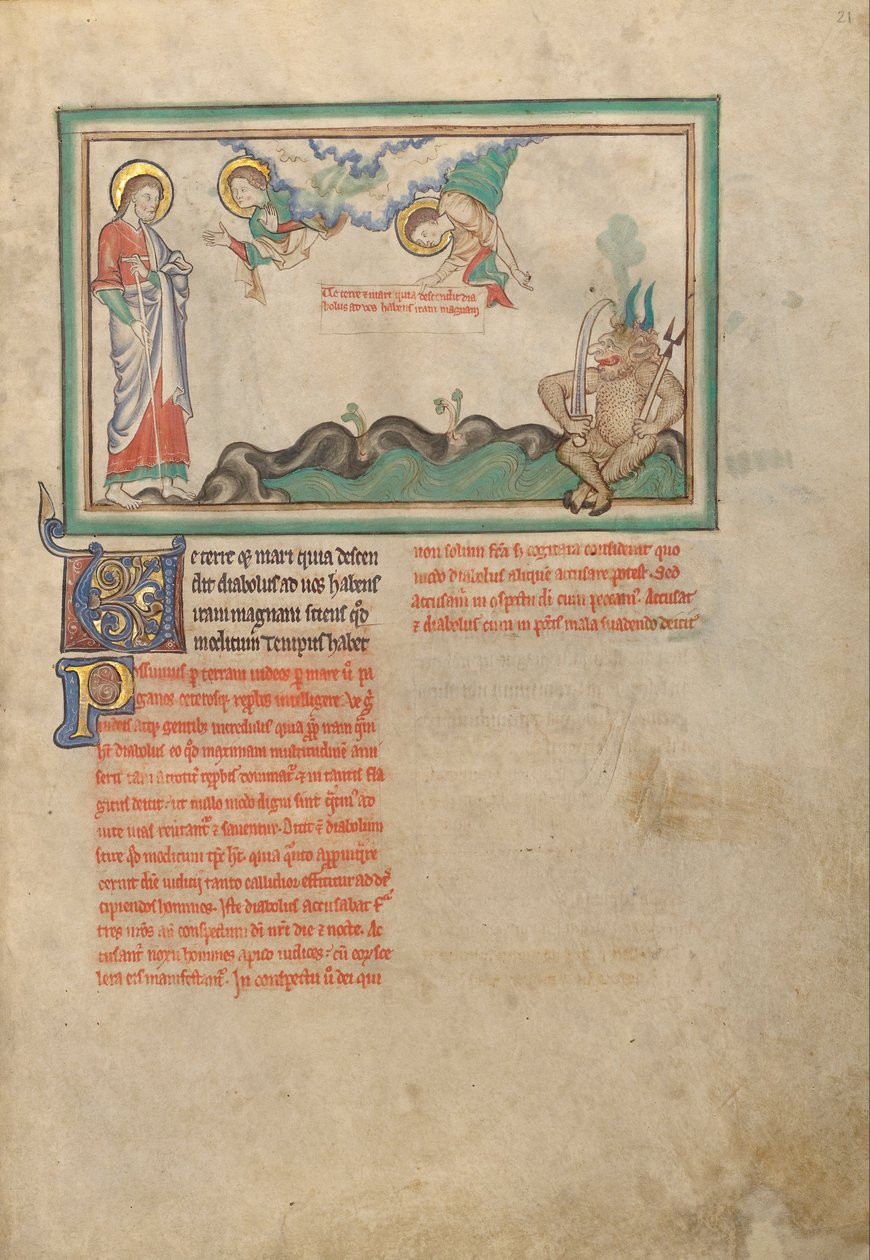 21
Ue terre & mari quia descendit dia
bolus ad vos habens iram magnam
Ue terre & mari quia descen
dit diabolus ad uos habens
iram magnam sciens qd
modicum tempus habet
Possumus p terram iudeos p mare u pa
ganos ceterosq reprobos intelligere. Ve g
iudeis atq gentibz incredulis quia iram
ht diabolus eo qd maximam multitudinē
& in tantis fla
gitiis deicit ut nullo modo digni sint ad
uite uias & saluentur. Dicit diabolum
scire qd modicum tps ht. quia qnto appropinqre
cernit diē iudicii tanto callidior efficitur ad de
cipiendos homines. Iste diabolus accusabat fra
tres nros an conspectum di nri die & nocte. Ac
cusant homines apud iudices cū eoꝝ sce
lera eis manifestant. In conspectu u dei qui
non solum fca s cogitata considerat quo
modo diabolus aliquē accusare potest. Sed
accusam in cspectu di cum peccam. Accusat
& diabolus cum mala suadendo deicit